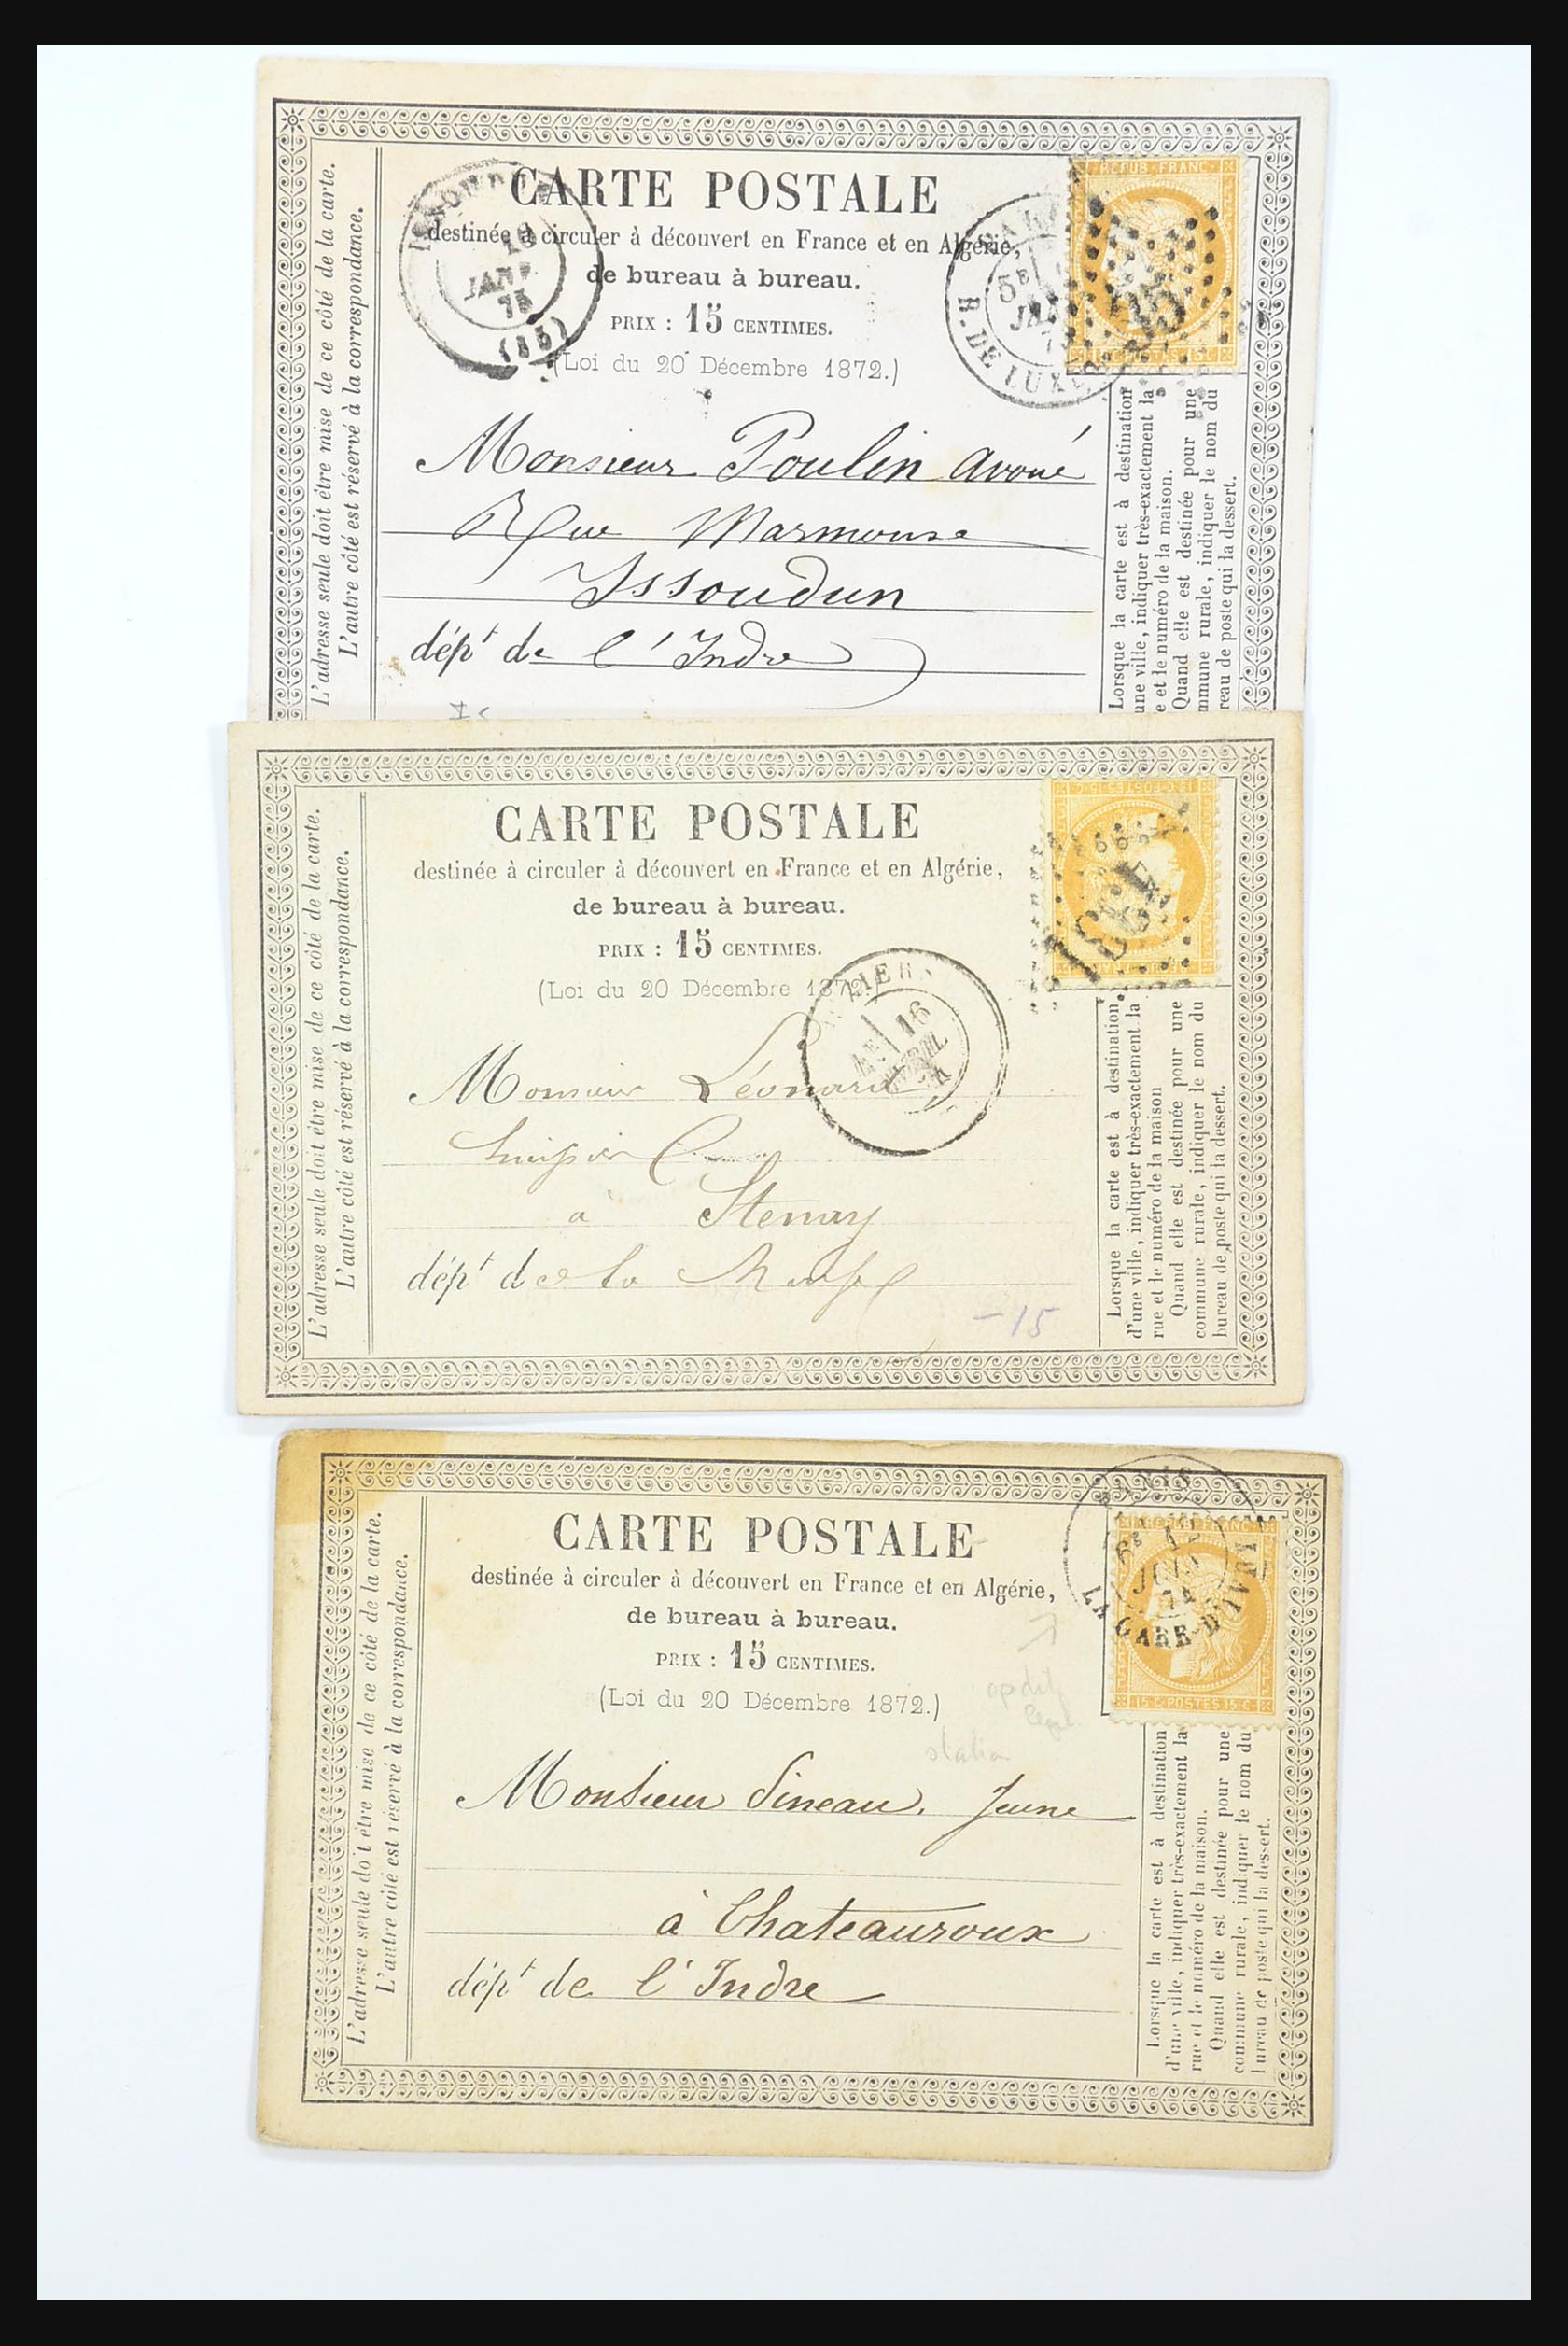 CARTE POSTALE
destinée à circuler à découvert en France et en Algérie,
de bureau à bureau.
PRIX : 15 CENTIMES.
(Loi du 20 Décembre 1872.)
L'adresse seule doit être mise de ce côté de la carte.
L'autre côté est réservé à la correspondance.
JANV
75
(35)
5E
R. DE LUX
REPUB FRANC
Monsieur Poulin avoué
Rue Marmouse
Issoudun
dépt de l'Indre
Lorsque la carte est à destination
une ville, indiquer très-exactement la
e et le numéro de la maison.
Quand elle est destinée pour une
mmune rurale, indiquer le nom du
reau de poste qui la dessert.
CARTE POSTALE
destinée à circuler à découvert en France et en Algérie,
de bureau à bureau.
PRIX : 15 CENTIMES.
(Loi du 20 Décembre 1872.)
L'adresse seule doit être mise de ce côté de la carte.
L'autre côté est réservé à la correspondance.
16
Monsieur Léonard
à Stenay
dépt de la
-15
Lorsque la carte est à destination
d'une ville, indiquer très-exactement la
rue et le numéro de la maison
Quand elle est destinée pour une
commune rurale, indiquer le nom du
bureau de poste qui la dessert.
CARTE POSTALE
destinée à circuler à découvert en France et en Algérie,
de bureau à bureau.
PRIX : 15 CENTIMES.
(Loi du 20 Décembre 1872.)
L'adresse seule doit être mise de ce côté de la carte.
L'autre côté est réservé à la correspondance.
PARIS
LA GARE-D'IVRY
74
15 C. POSTES 15 C.
station
Monsieur Sineau. Jeune
à Chateauroux
dépt de l'Indre
Lorsque la carte est à destination
d'une ville, indiquer très-exactement la
rue et le numéro de la maison.
Quand elle est destinée pour une
commune rurale, indiquer le nom du
bureau de poste qui la dessert.